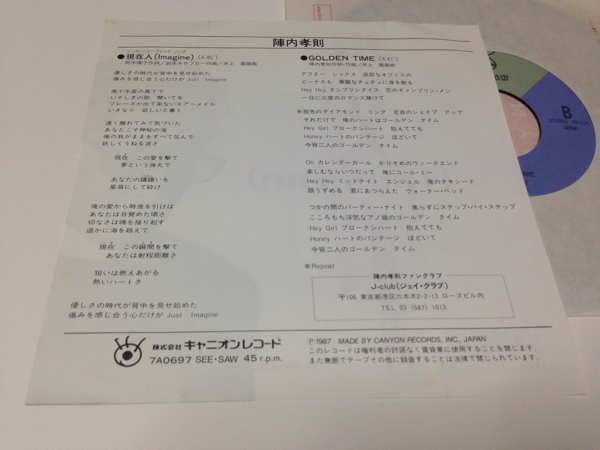 陣内孝則
●現在人(Imagine)[4'45"]
優しさの時代が背中を見せ始めた
傷みを感じ合う心だけが Just Imagine
南十字星の真下で
いそしぎの歌 聞いてる
フレーズが出て来ないエアーメイル
いきなり 欲しいと書く
遠く離れてみて気づいた
あなたこそ神秘の海
俺の我がままをすべて包んで
妖しくうねる波さ
現在 この愛を撃て
夢という弾丸で
あなたの躊躇いを
星屑にして砕け
俺の愛から時差を引けば
あなたは目覚めた頃さ
切なさは魂を揺り起す
遥かに海を越えて
現在 この瞬間を撃て
あなたは射程距離さ
狙いは燃えあがる
熱いハートさ
優しさの時代が背中を見せ始めた
傷みを感じ合う心だけが Just Imagine
●GOLDEN TIME [4'41"]
陣内孝則作詞・作曲／井上 鑑編曲
アフター シックス 退屈なオフィスの
ビーナスも 華麗なチュチュに身を飾る
Hey Hey タンブリンダイス 恋のギャンブリンマン
一日に三度のロマンス賭けて
※指先のダイアモンド リング 足首のシェイプ アップ
それだけで 俺のハートはゴールデン タイム
Hey Girl ブロークンハート 抱えてても
Honey ハートのバンテージ ほどいて
今宵二人のゴールデン タイム
Oh カレンダーガール かりそめのウィークエンド
楽しむならいつだって 俺にコール・ミー
Hey Hey ミッドナイト エンジェル 俺のタキシード
顔うずめる 君にあつらえた ウォーター・ベッド
つかの間のパーティー・ナイト 焦らずにステップ・バイ・ステップ
こころもち浮気なアノ娘のゴールデン タイム
Hey Girl ブロークンハート 抱えてても
Honey ハートのバンテージ ほどいて
今宵二人のゴールデン タイム
※Repeat
陣内孝則ファンクラブ
J-club(ジェイ・クラブ)
〒106 東京都港区六本木2-2-13 ローズビル内
TEL. 03 (587) 1013
株式会社 キャニオンレコード
7A0697 SEE・SAW 45 r.p.m.
Ⓟ1987 MADE BY CANYON RECORDS, INC., JAPAN
このレコードは権利者の許諾なく賃貸業に使用することを禁じます。
また無断でテープその他に録音することは法律で禁じられています。
B